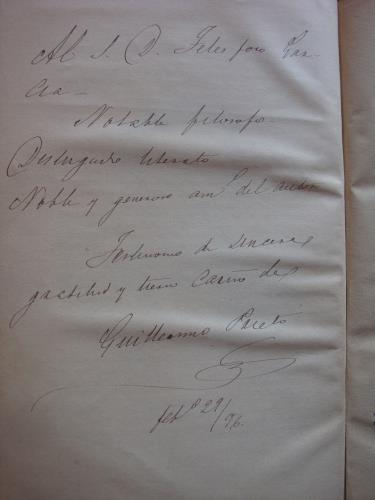 Al S. D. Telesforo Gar-
cia_
Notable filosofo
Distinguido literato
Noble y generoso am.º del autor
Testimonio de sincera
gratitud y tierno cariño de
Guillermo Prieto
feb.º 29/96.